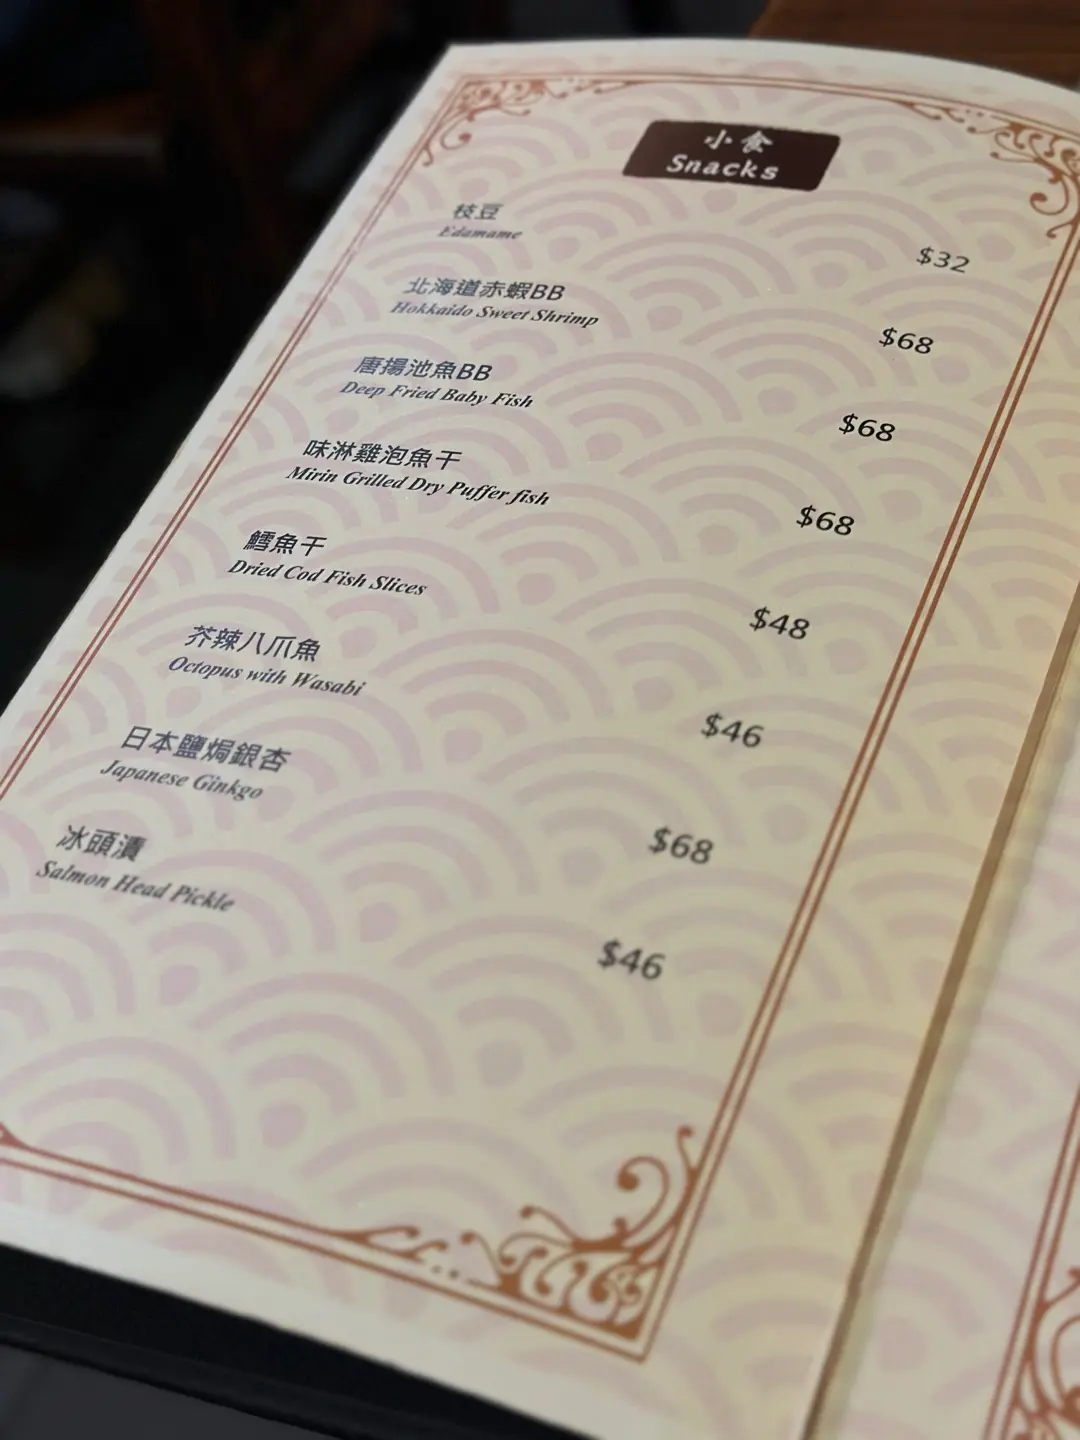 小食
Snacks
枝豆
Edamame
$32
北海道赤蝦BB
Hokkaido Sweet Shrimp
$68
唐揚池魚BB
Deep Fried Baby Fish
$68
味淋雞泡魚干
Mirin Grilled Dry Puffer fish
$68
鱈魚干
Dried Cod Fish Slices
$48
芥辣八爪魚
Octopus with Wasabi
$46
日本鹽焗銀杏
Japanese Ginkgo
$68
冰頭漬
Salmon Head Pickle
$46